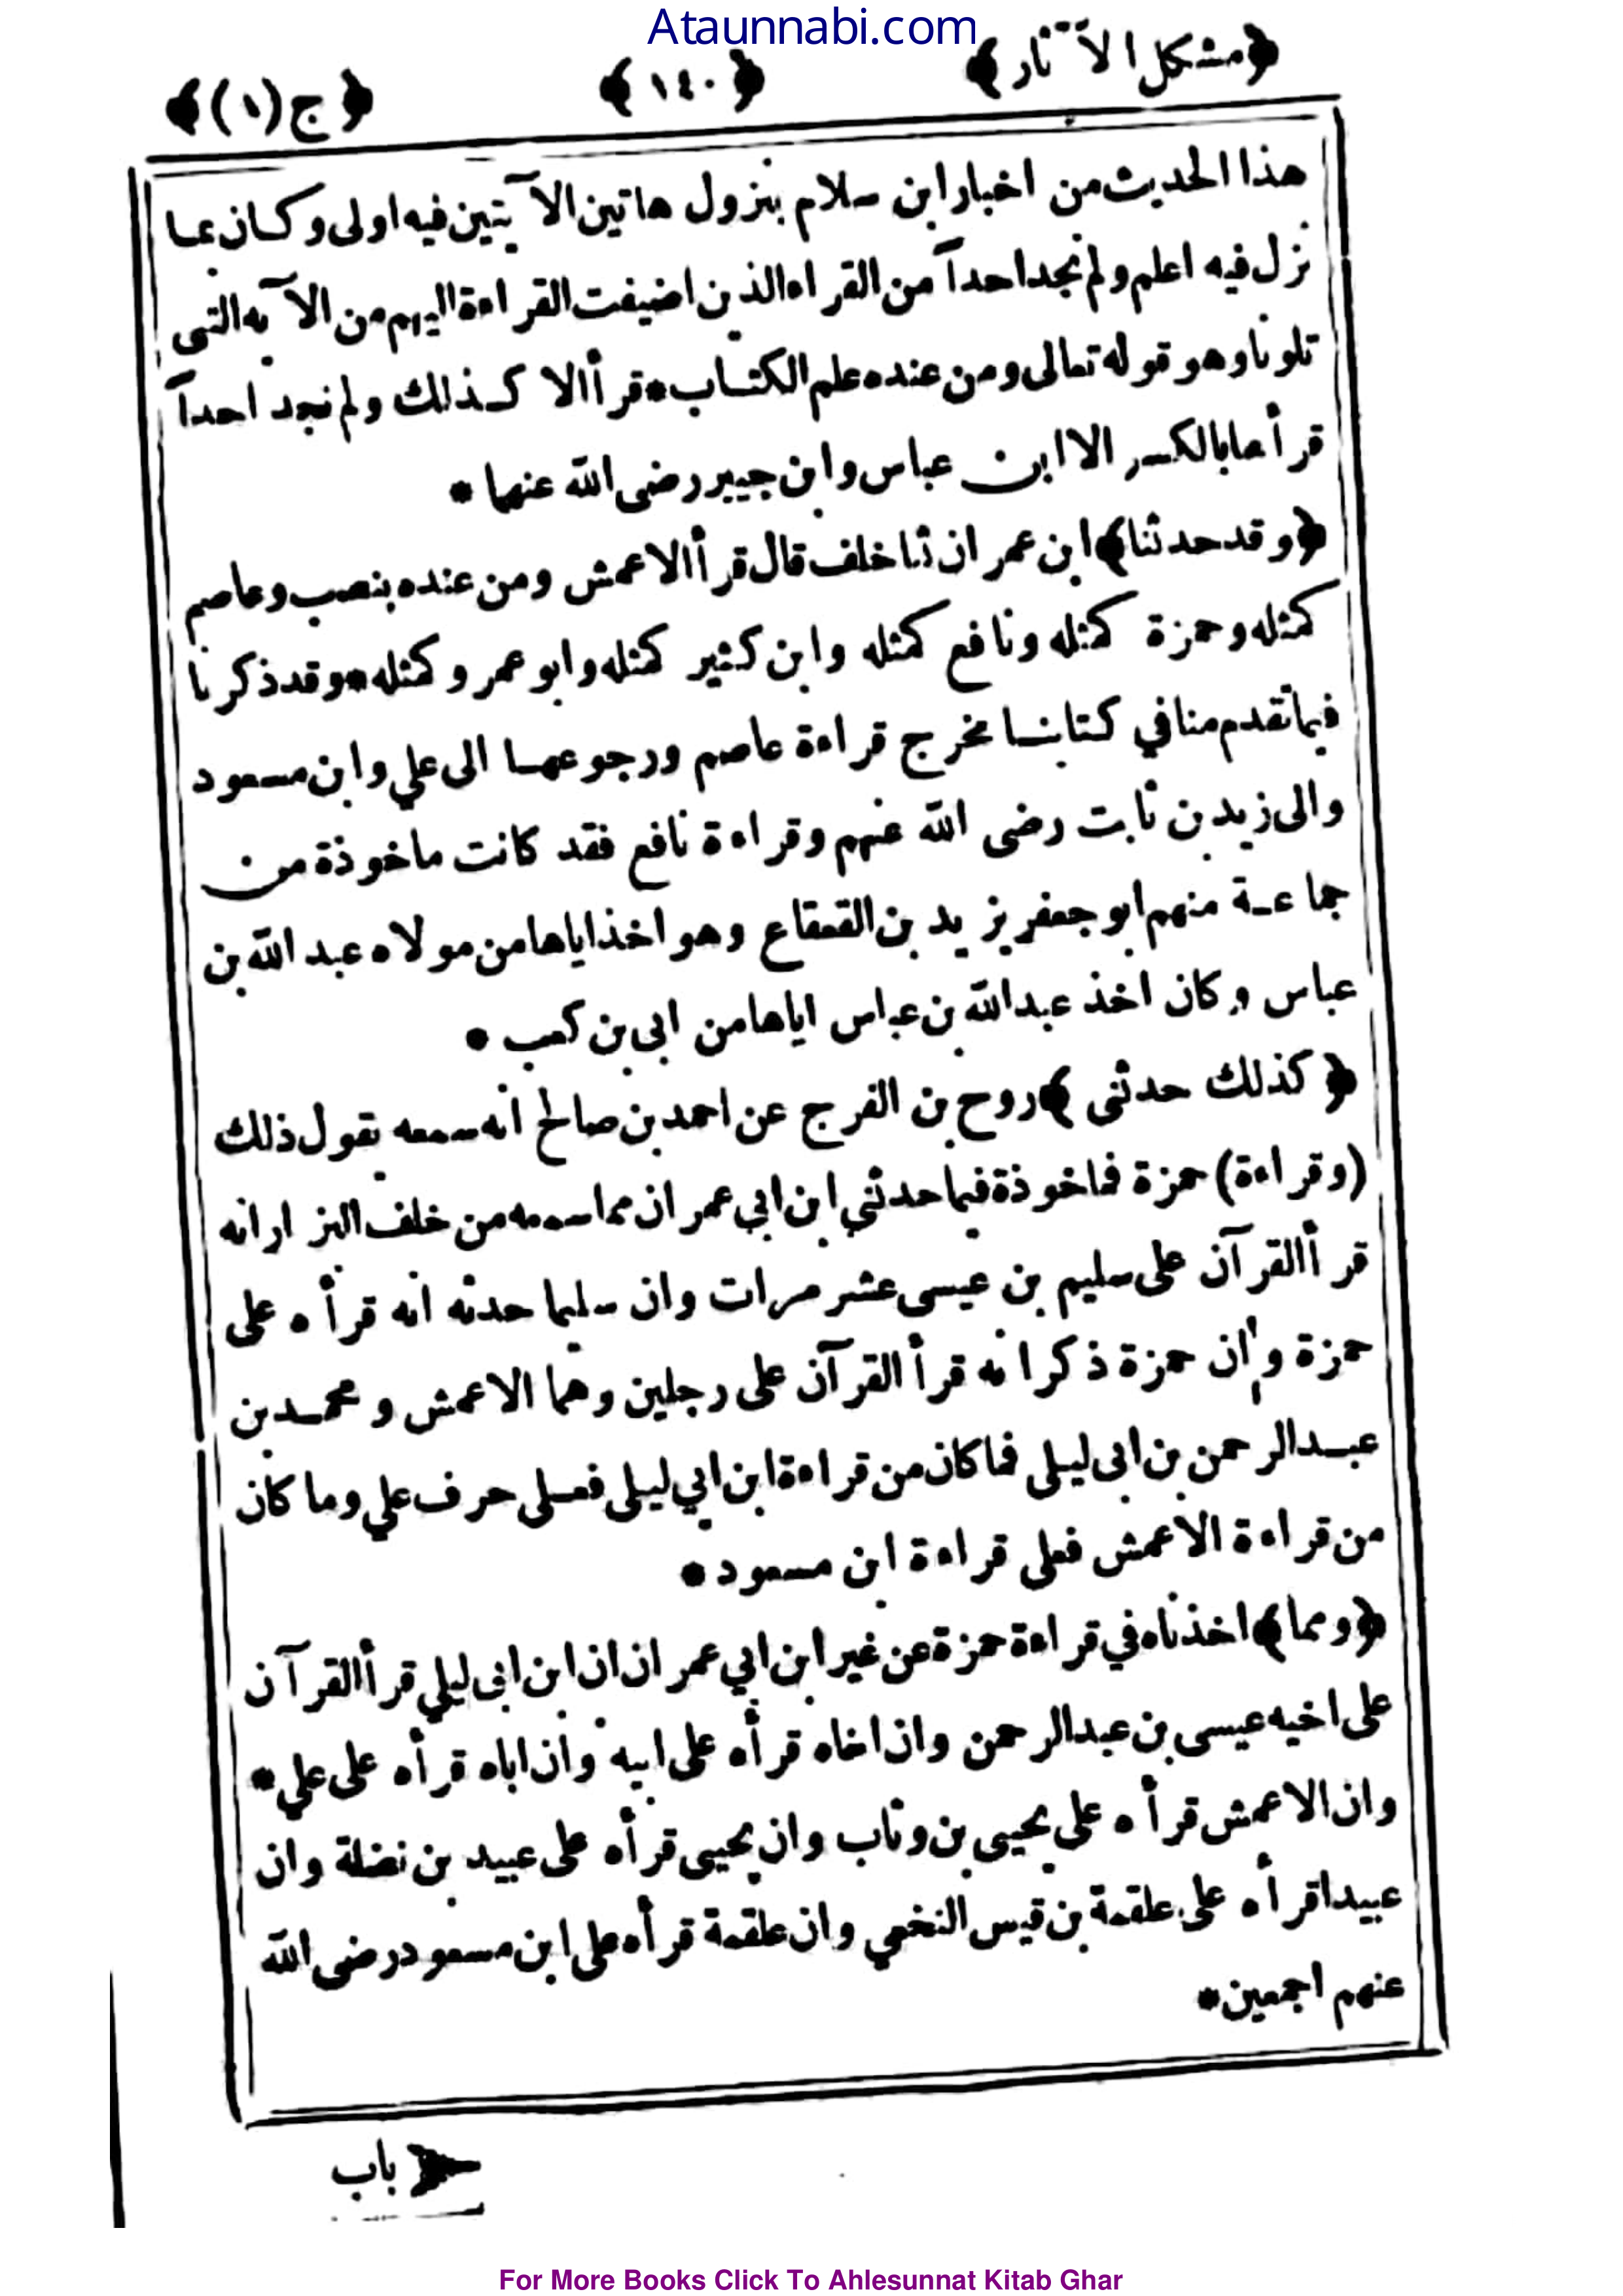 Ataunnabi.com
﴿مشكل الآثار﴾ ﴿١٤٠﴾ ﴿ج (١)﴾
هذا الحديث من اخبار ابن سلام بنزول هاتين الآيتين فيه اولى وكان بما
نزل فيه اعلم ولم نجد احداً من القراء الذين اضيفت القراءة اليهم من الآية التى
تلونا وهو قوله تعالى ومن عنده علم الكتاب * قرأ الا كذلك ولم نجد احداً
قرأها بالكسر الا ابن عباس وابن جبير رضى الله عنهما *
﴿وقد حدثنا﴾ ابن عمران ثنا خلف قال قرأ الاعمش ومن عنده بنصب وعاصم
كمثله وحمزة كمثله ونافع كمثله وابن كثير كمثله وابو عمرو كمثله * وقد ذكرنا
فيما تقدم منا في كتابنا مخرج قراءة عاصم ورجوعها الى علي وابن مسعود
والى زيد بن ثابت رضى الله عنهم وقراءة نافع فقد كانت ماخوذة من
جماعة منهم ابو جعفر يزيد بن القعقاع وهو اخذ اياها من مولاه عبد الله بن
عباس وكان اخذ عبد الله بن عباس اياها من ابى بن كعب *
﴿كذلك حدثنى﴾ روح بن الفرج عن احمد بن صالح انه سمعه يقول ذلك
(وقراءة) حمزة فماخوذة فيما حدثني ابن ابي عمران مما سمعه من خلف البزار انه
قرأ القرآن على سليم بن عيسى عشر مرات وان سليما حدثه انه قرأه على
حمزة وان حمزة ذكر انه قرأ القرآن على رجلين وهما الاعمش ومحمد بن
عبد الرحمن بن ابى ليلى فما كان من قراءة ابن ابي ليلى فعلى حرف علي وما كان
من قراءة الاعمش فعلى قراءة ابن مسعود *
﴿ومما﴾ اخذناه في قراءة حمزة عن غير ابن ابي عمران ان ابن ابى ليلي قرأ القرآن
على اخيه عيسى بن عبد الرحمن وان اخاه قرأه على ابيه وان اباه قرأه على علي *
وان الاعمش قرأه على يحيى بن وثاب وان يحيى قرأه على عبيد بن نضلة وان
عبيدا قرأه على علقمة بن قيس النخعي وان علقمة قرأه على ابن مسعود رضى الله
عنهم اجمعين *
﴿باب
For More Books Click To Ahlesunnat Kitab Ghar